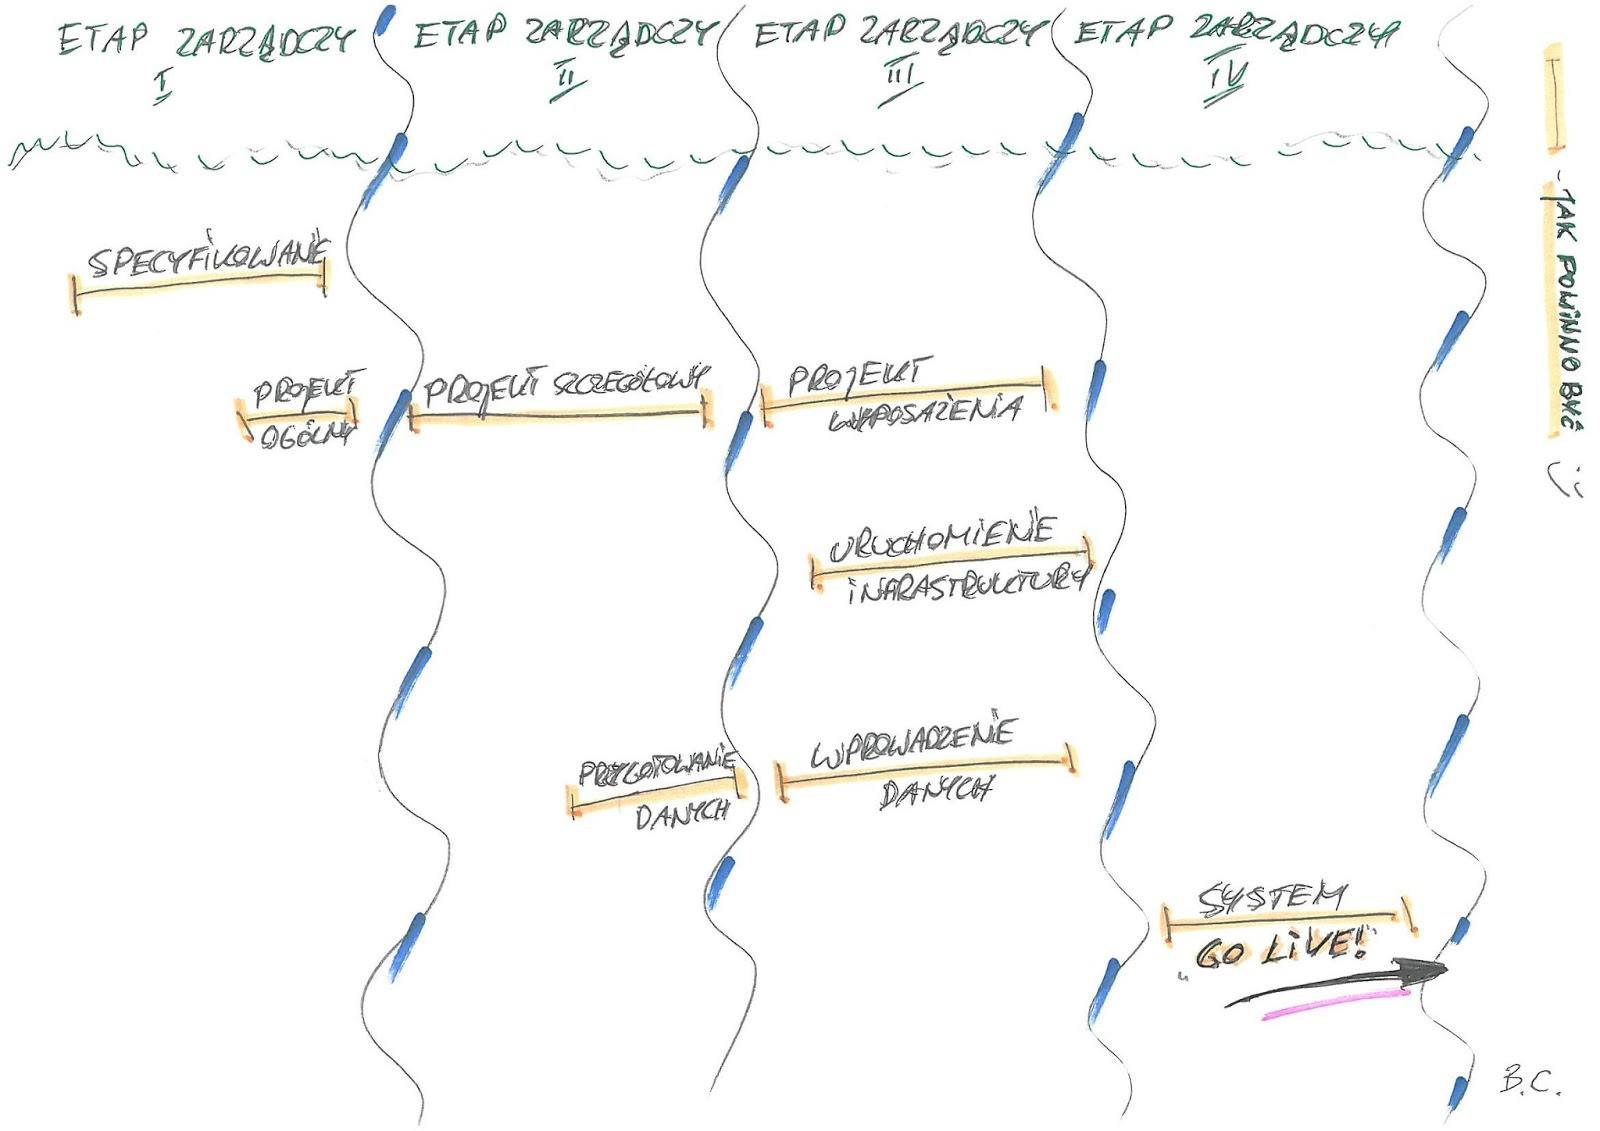 ETAP ZARZĄDCZY
I
ETAP ZARZĄDCZY
II
ETAP ZARZĄDCZY
III
ETAP ZARZĄDCZY
IV
- JAK POWINNO BYĆ :)
SPECYFIKOWANIE
PROJEKT
OGÓLNY
PROJEKT SZCZEGÓŁOWY
PROJEKT
WYPOSAŻENIA
URUCHOMIENIE
INFRASTRUKTURY
PRZYGOTOWANIE
DANYCH
WPROWADZENIE
DANYCH
SYSTEM
"GO LIVE!"
B.C.